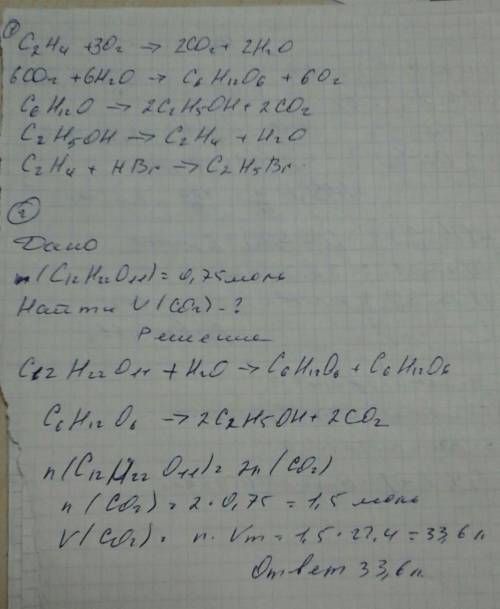 ①
C2H4 + 3O2 → 2CO2 + 2H2O
6CO2 + 6H2O → C6H12O6 + 6O2
C6H12O → 2C2H5OH + 2CO2
C2H5OH → C2H4 + H2O
C2H4 + HBr → C2H5Br
②
Дано
n(C12H22O11) = 0,75 моль
Найти V(CO2) - ?
Решение
C12H22O11 + H2O → C6H12O6 + C6H12O6
C6H12O6 → 2C2H5OH + 2CO2
n(C12H22O11) = 2n(CO2)
n(CO2) = 2 · 0,75 = 1,5 моль
V(CO2) = n · Vm = 1,5 · 22,4 = 33,6 л
Ответ 33,6 л.